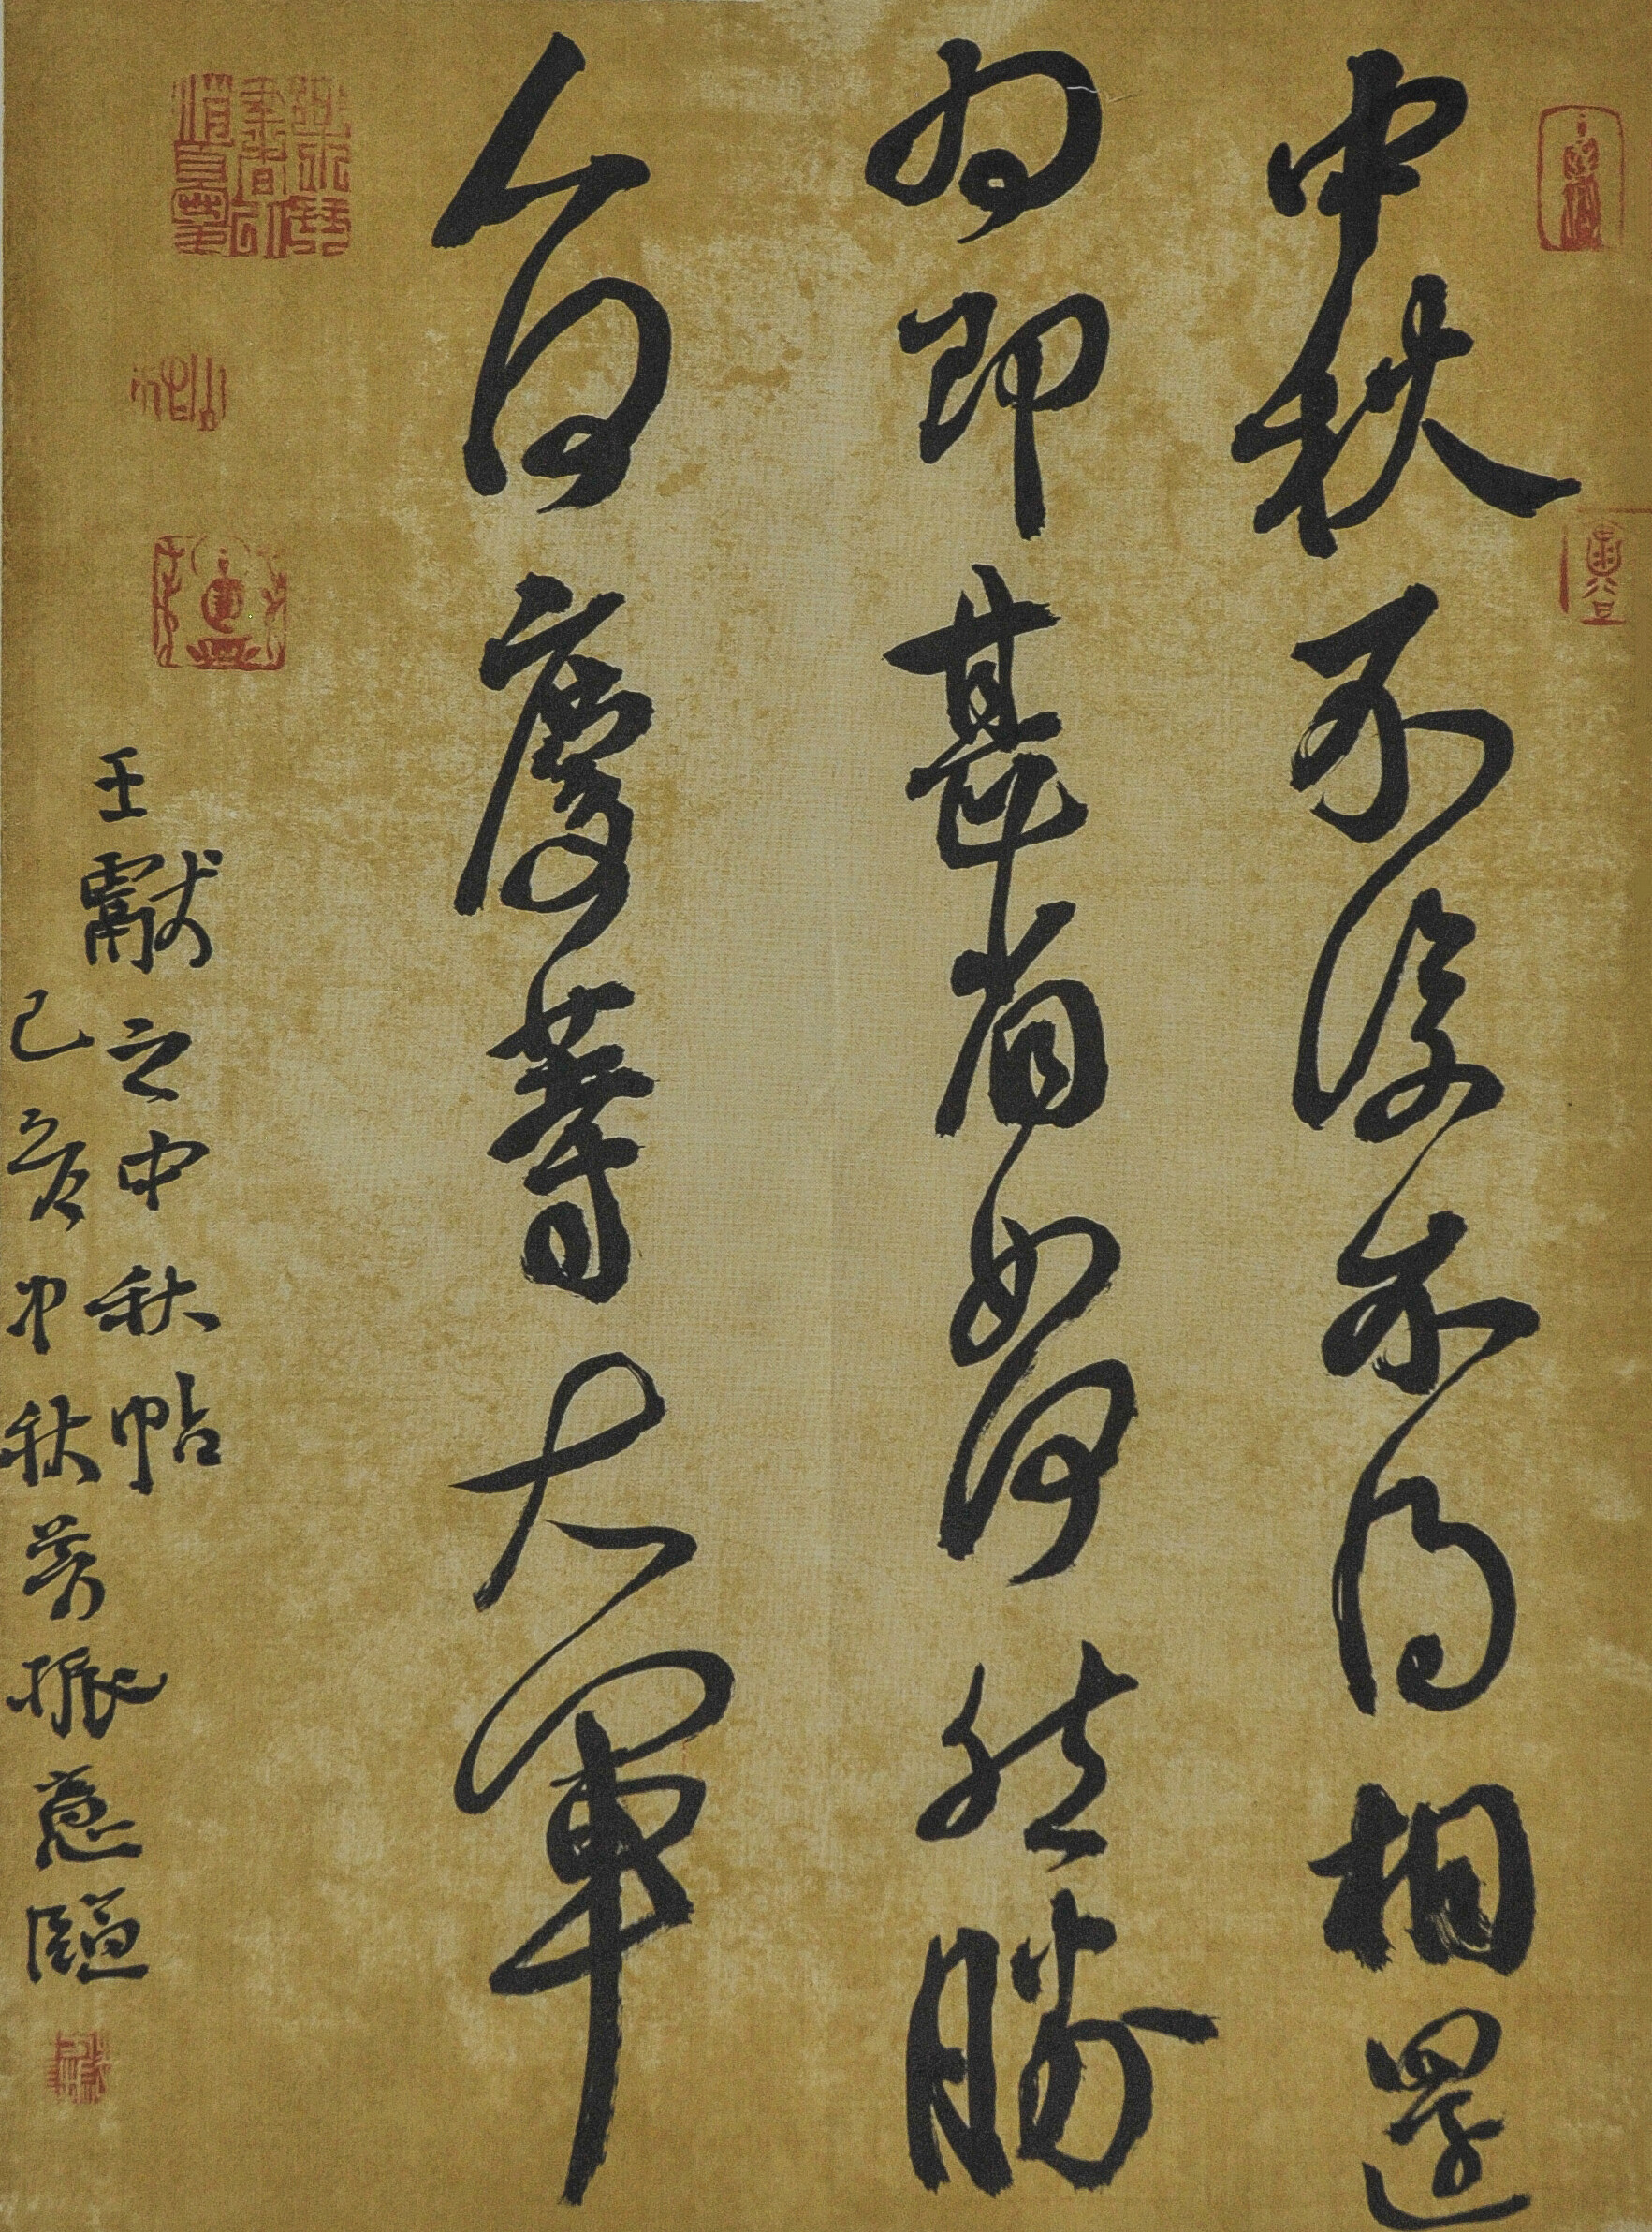 中秋不復不得相還
為即甚省如何然勝
人何慶等大軍
王獻之中秋帖
己亥中秋 振意臨